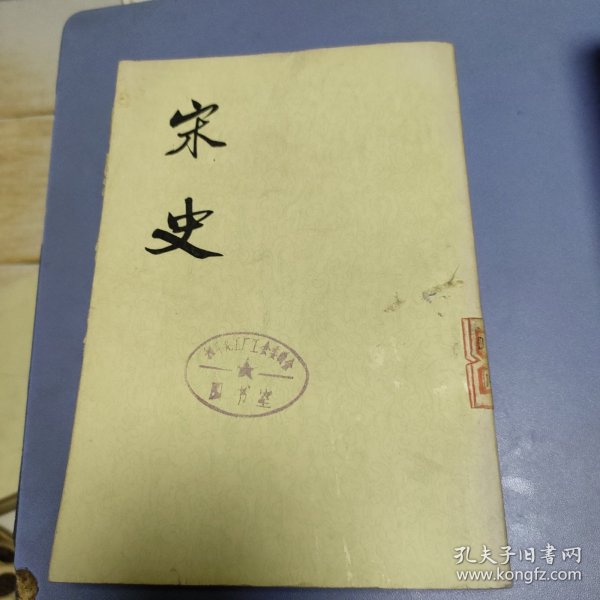 宋史
工会委员会
图书室
孔夫子旧书网
www.kongfz.com